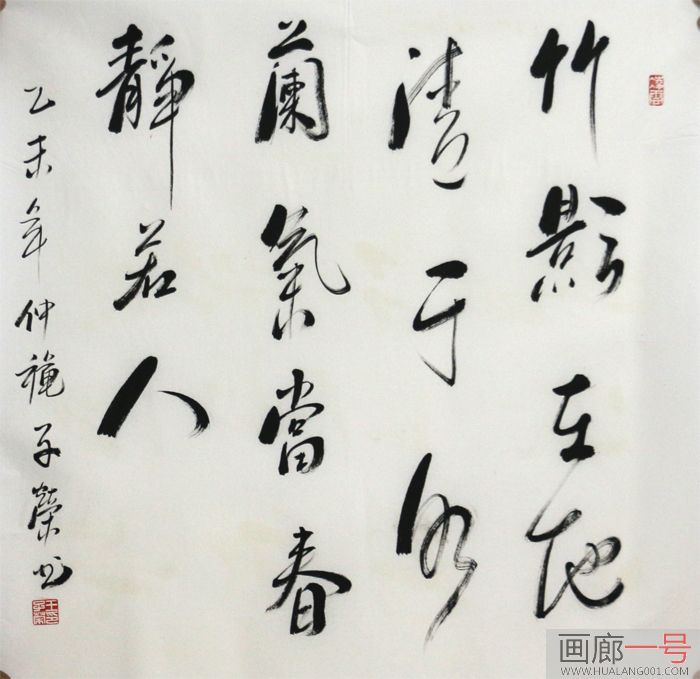 竹影在地
清于水
蘭氣當春
靜若人
乙未年仲穐子榮书
画廊一号
WWW.HUALANG001.COM